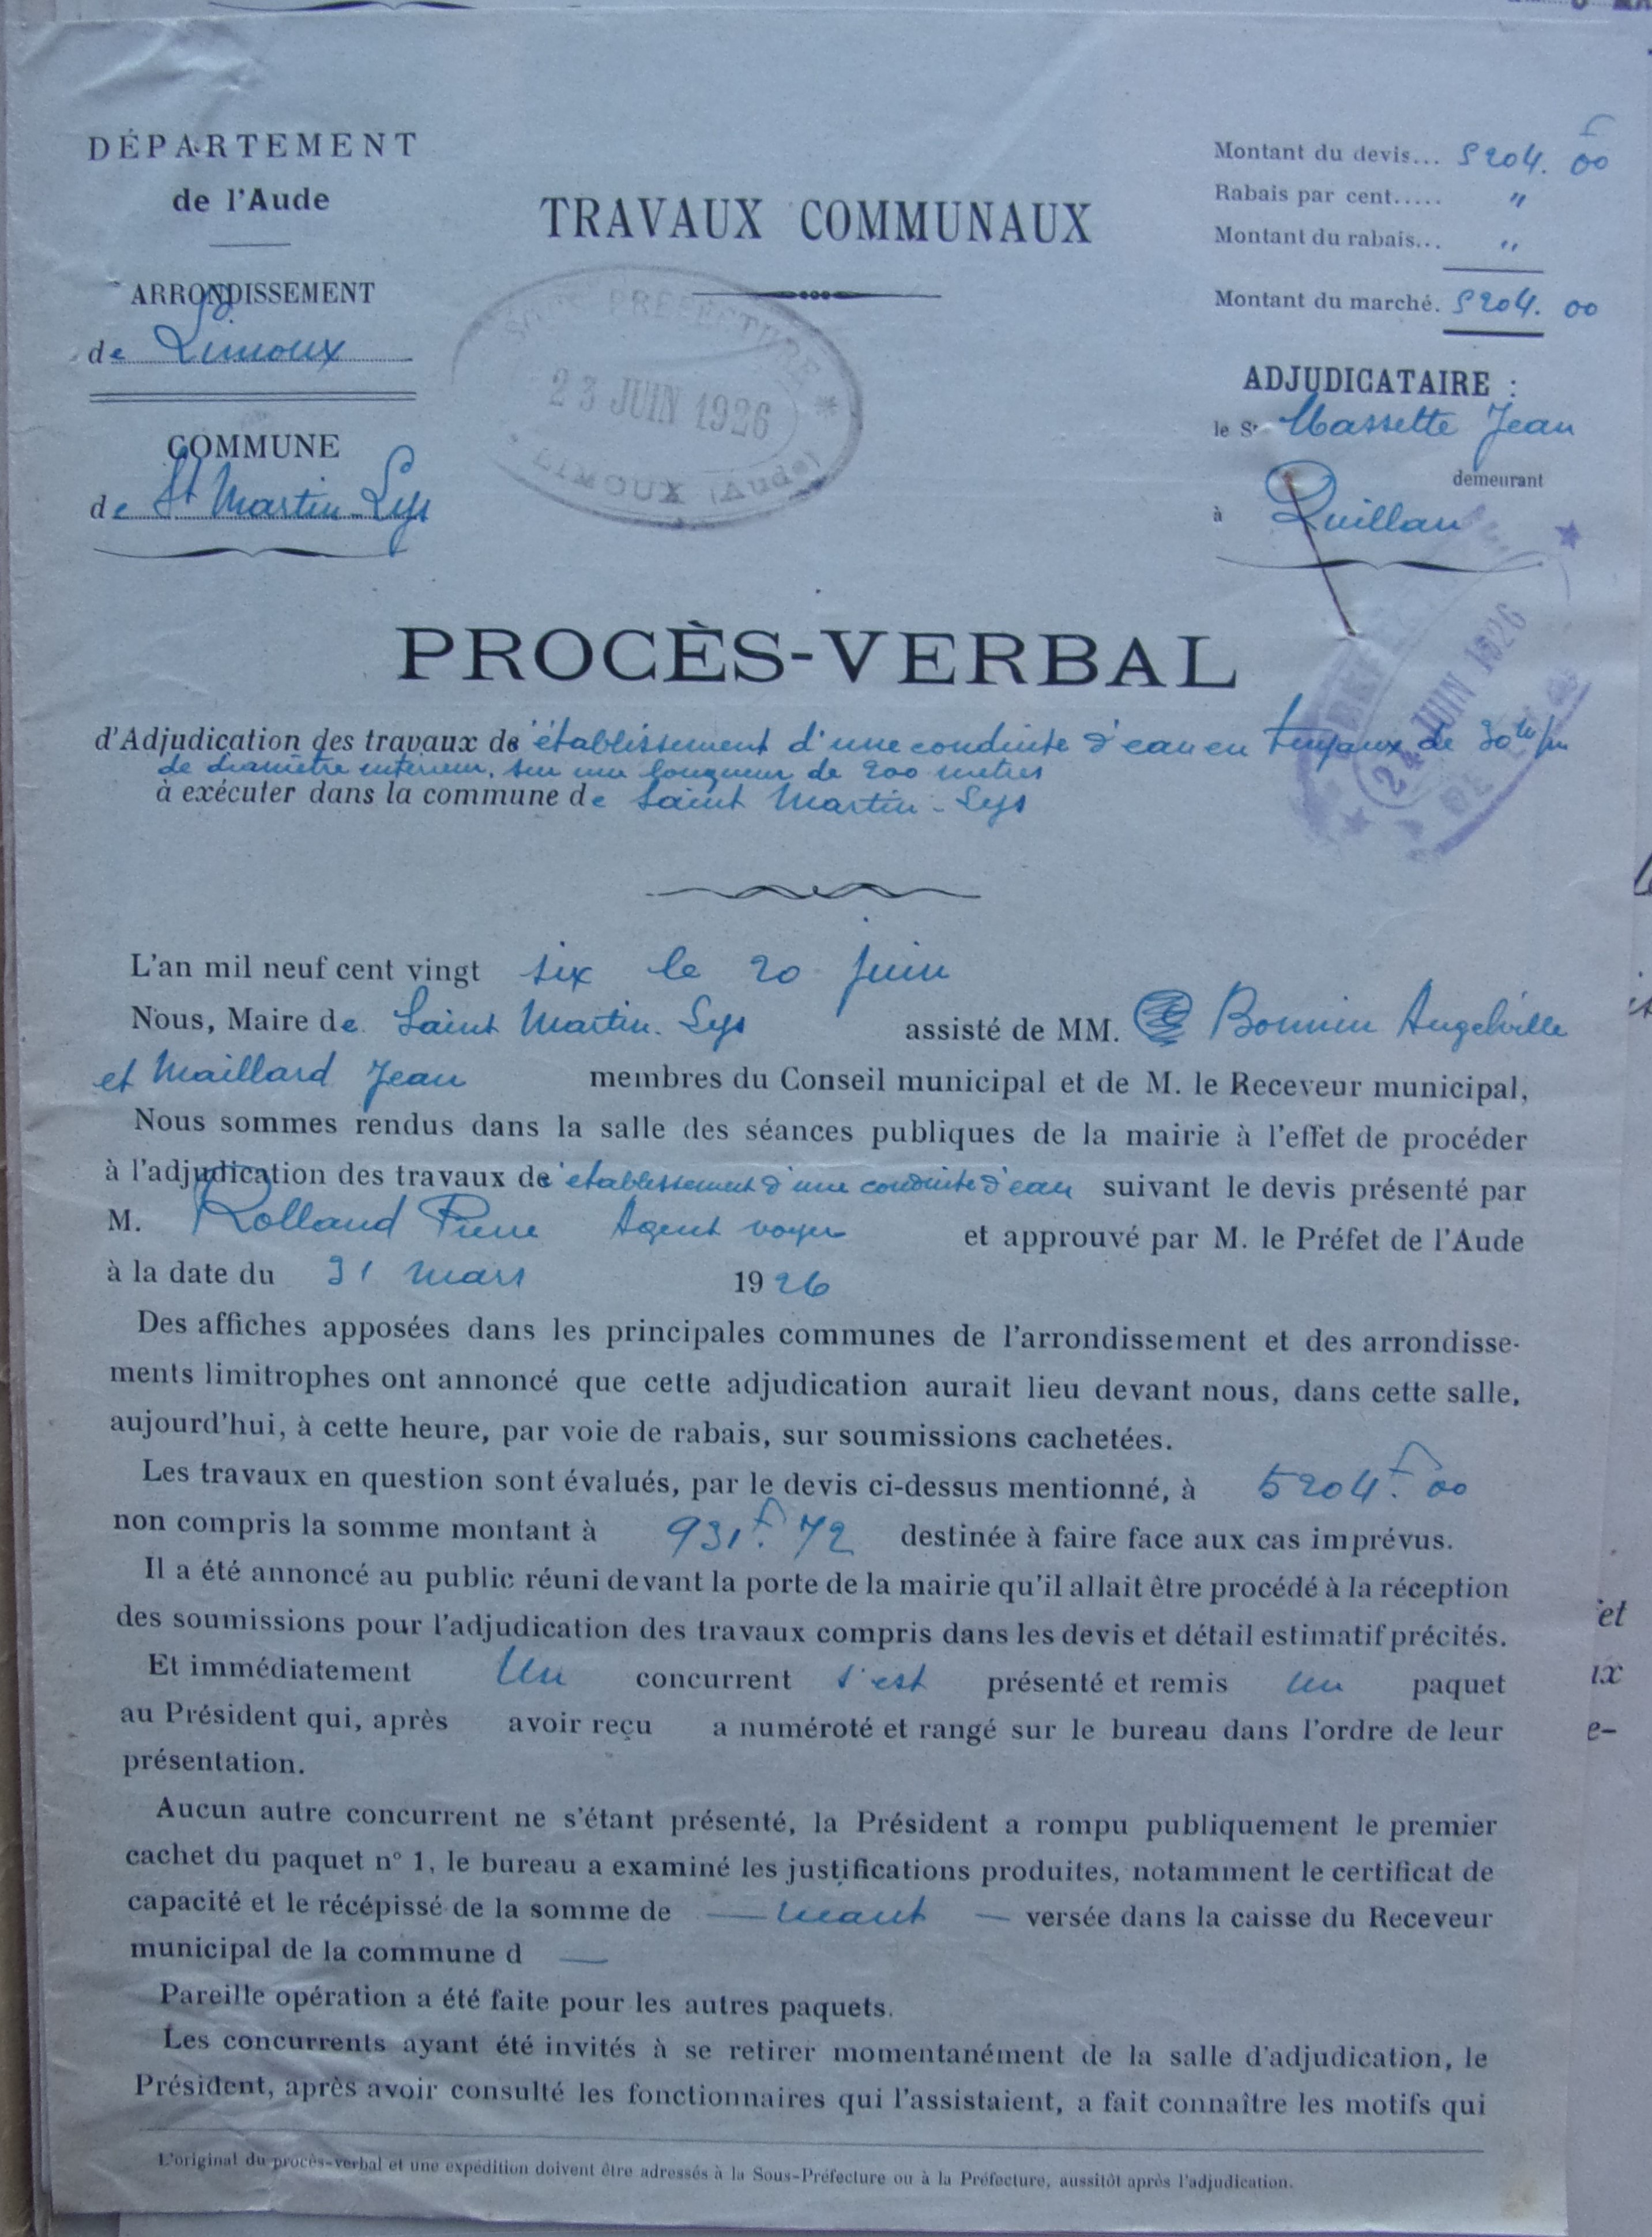 DÉPARTEMENT
de l'Aude
ARRONDISSEMENT
de Limoux
COMMUNE
de St Martin-Lys
TRAVAUX COMMUNAUX
SOUS PRÉFECTURE
23 JUIN 1926
LIMOUX (Aude)
Montant du devis... 5204.00
Rabais par cent..... "
Montant du rabais... "
Montant du marché. 5204.00
ADJUDICATAIRE :
le Sr Massette Jean
demeurant
à Quillan
24 JUIN 1926
PROCÈS-VERBAL
d'Adjudication des travaux de établissement d'une conduite d'eau en tuyaux de 30 m/m
de diamètre intérieur, sur une longueur de 200 mètres
à exécuter dans la commune de Saint Martin-Lys
L'an mil neuf cent vingt six le 20 juin
Nous, Maire de Saint Martin-Lys assisté de MM. Bonnin
et Maillard Jean membres du Conseil municipal et de M. le Receveur municipal,
Nous sommes rendus dans la salle des séances publiques de la mairie à l'effet de procéder
à l'adjudication des travaux de établissement d'une conduite d'eau suivant le devis présenté par
M. Rolland Pierre Agent voyer et approuvé par M. le Préfet de l'Aude
à la date du 31 mars 1926
Des affiches apposées dans les principales communes de l'arrondissement et des arrondisse-
ments limitrophes ont annoncé que cette adjudication aurait lieu devant nous, dans cette salle,
aujourd'hui, à cette heure, par voie de rabais, sur soumissions cachetées.
Les travaux en question sont évalués, par le devis ci-dessus mentionné, à 5204f.00
non compris la somme montant à 931f.72 destinée à faire face aux cas imprévus.
Il a été annoncé au public réuni devant la porte de la mairie qu'il allait être procédé à la réception
des soumissions pour l'adjudication des travaux compris dans les devis et détail estimatif précités.
Et immédiatement Un concurrent s'est présenté et remis un paquet
au Président qui, après avoir reçu a numéroté et rangé sur le bureau dans l'ordre de leur
présentation.
Aucun autre concurrent ne s'étant présenté, la Président a rompu publiquement le premier
cachet du paquet n° 1, le bureau a examiné les justifications produites, notamment le certificat de
capacité et le récépissé de la somme de — néant — versée dans la caisse du Receveur
municipal de la commune d —
Pareille opération a été faite pour les autres paquets.
Les concurrents ayant été invités à se retirer momentanément de la salle d'adjudication, le
Président, après avoir consulté les fonctionnaires qui l'assistaient, a fait connaître les motifs qui
L'original du procès-verbal et une expédition doivent être adressés à la Sous-Préfecture ou à la Préfecture, aussitôt après l'adjudication.
et
ux
e-